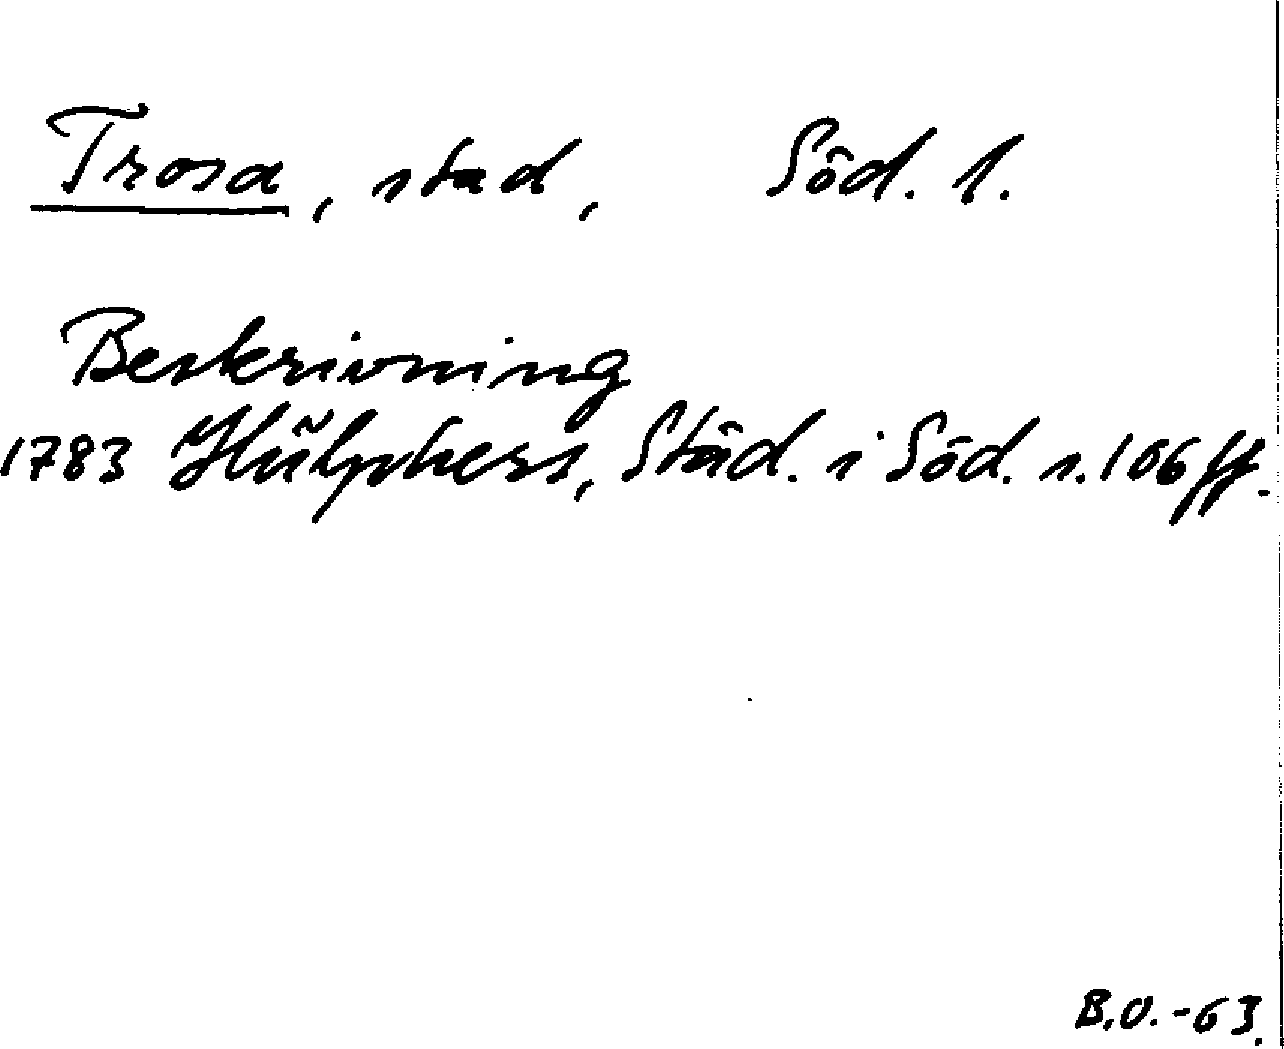 Trosa, stad, Söd. l.
Beskrivning
1783 Hülphers, Städ. i Söd. s. 106 ff.
B.O. -63.